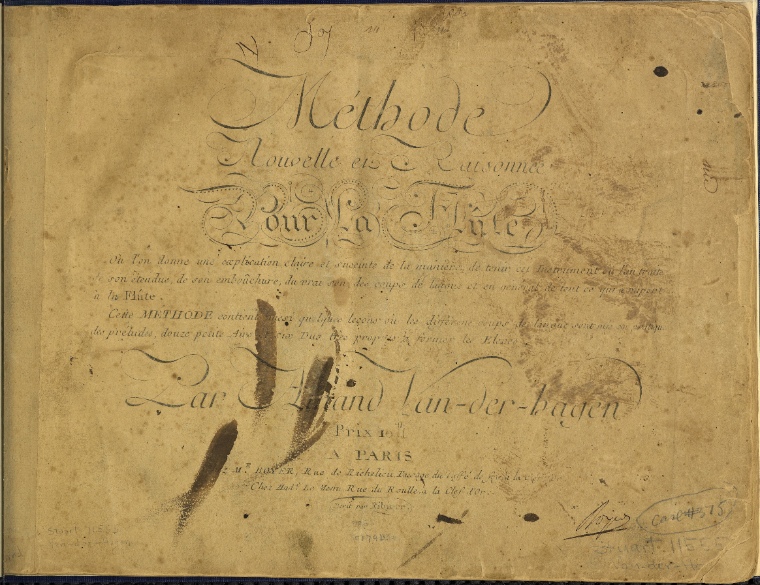 Méthode
Nouvelle et Raisonnée
Pour La Flûte
Où l'on donne une explication claire et succinte de la maniere de tenir cet Instrument où l'on traite
son étendue, de son embouchure, du vrai son, des coups de langue et en général de tout ce qui a rapport
à la Flûte.
Cette METHODE contient aussi quelques leçons où les différens coups de langue sont mis en pratique
des préludes, douze petits Airs et six Duo très propres à former les Eleves.
Par Amand Van-der-hagen
Prix
A PARIS
Mr. BOYER, Rue de Richelieu, Passage du Caffé de Foy
Chez Made. Le Menu, Rue du Roulle à la Clef d'Or.
Boyer
Case # 515